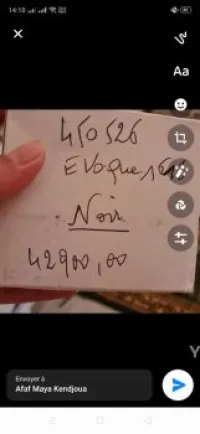 14:10
Aa
450526
Evoque
Noir
42900,00
Envoyer à
Afaf Maya Kendjoua